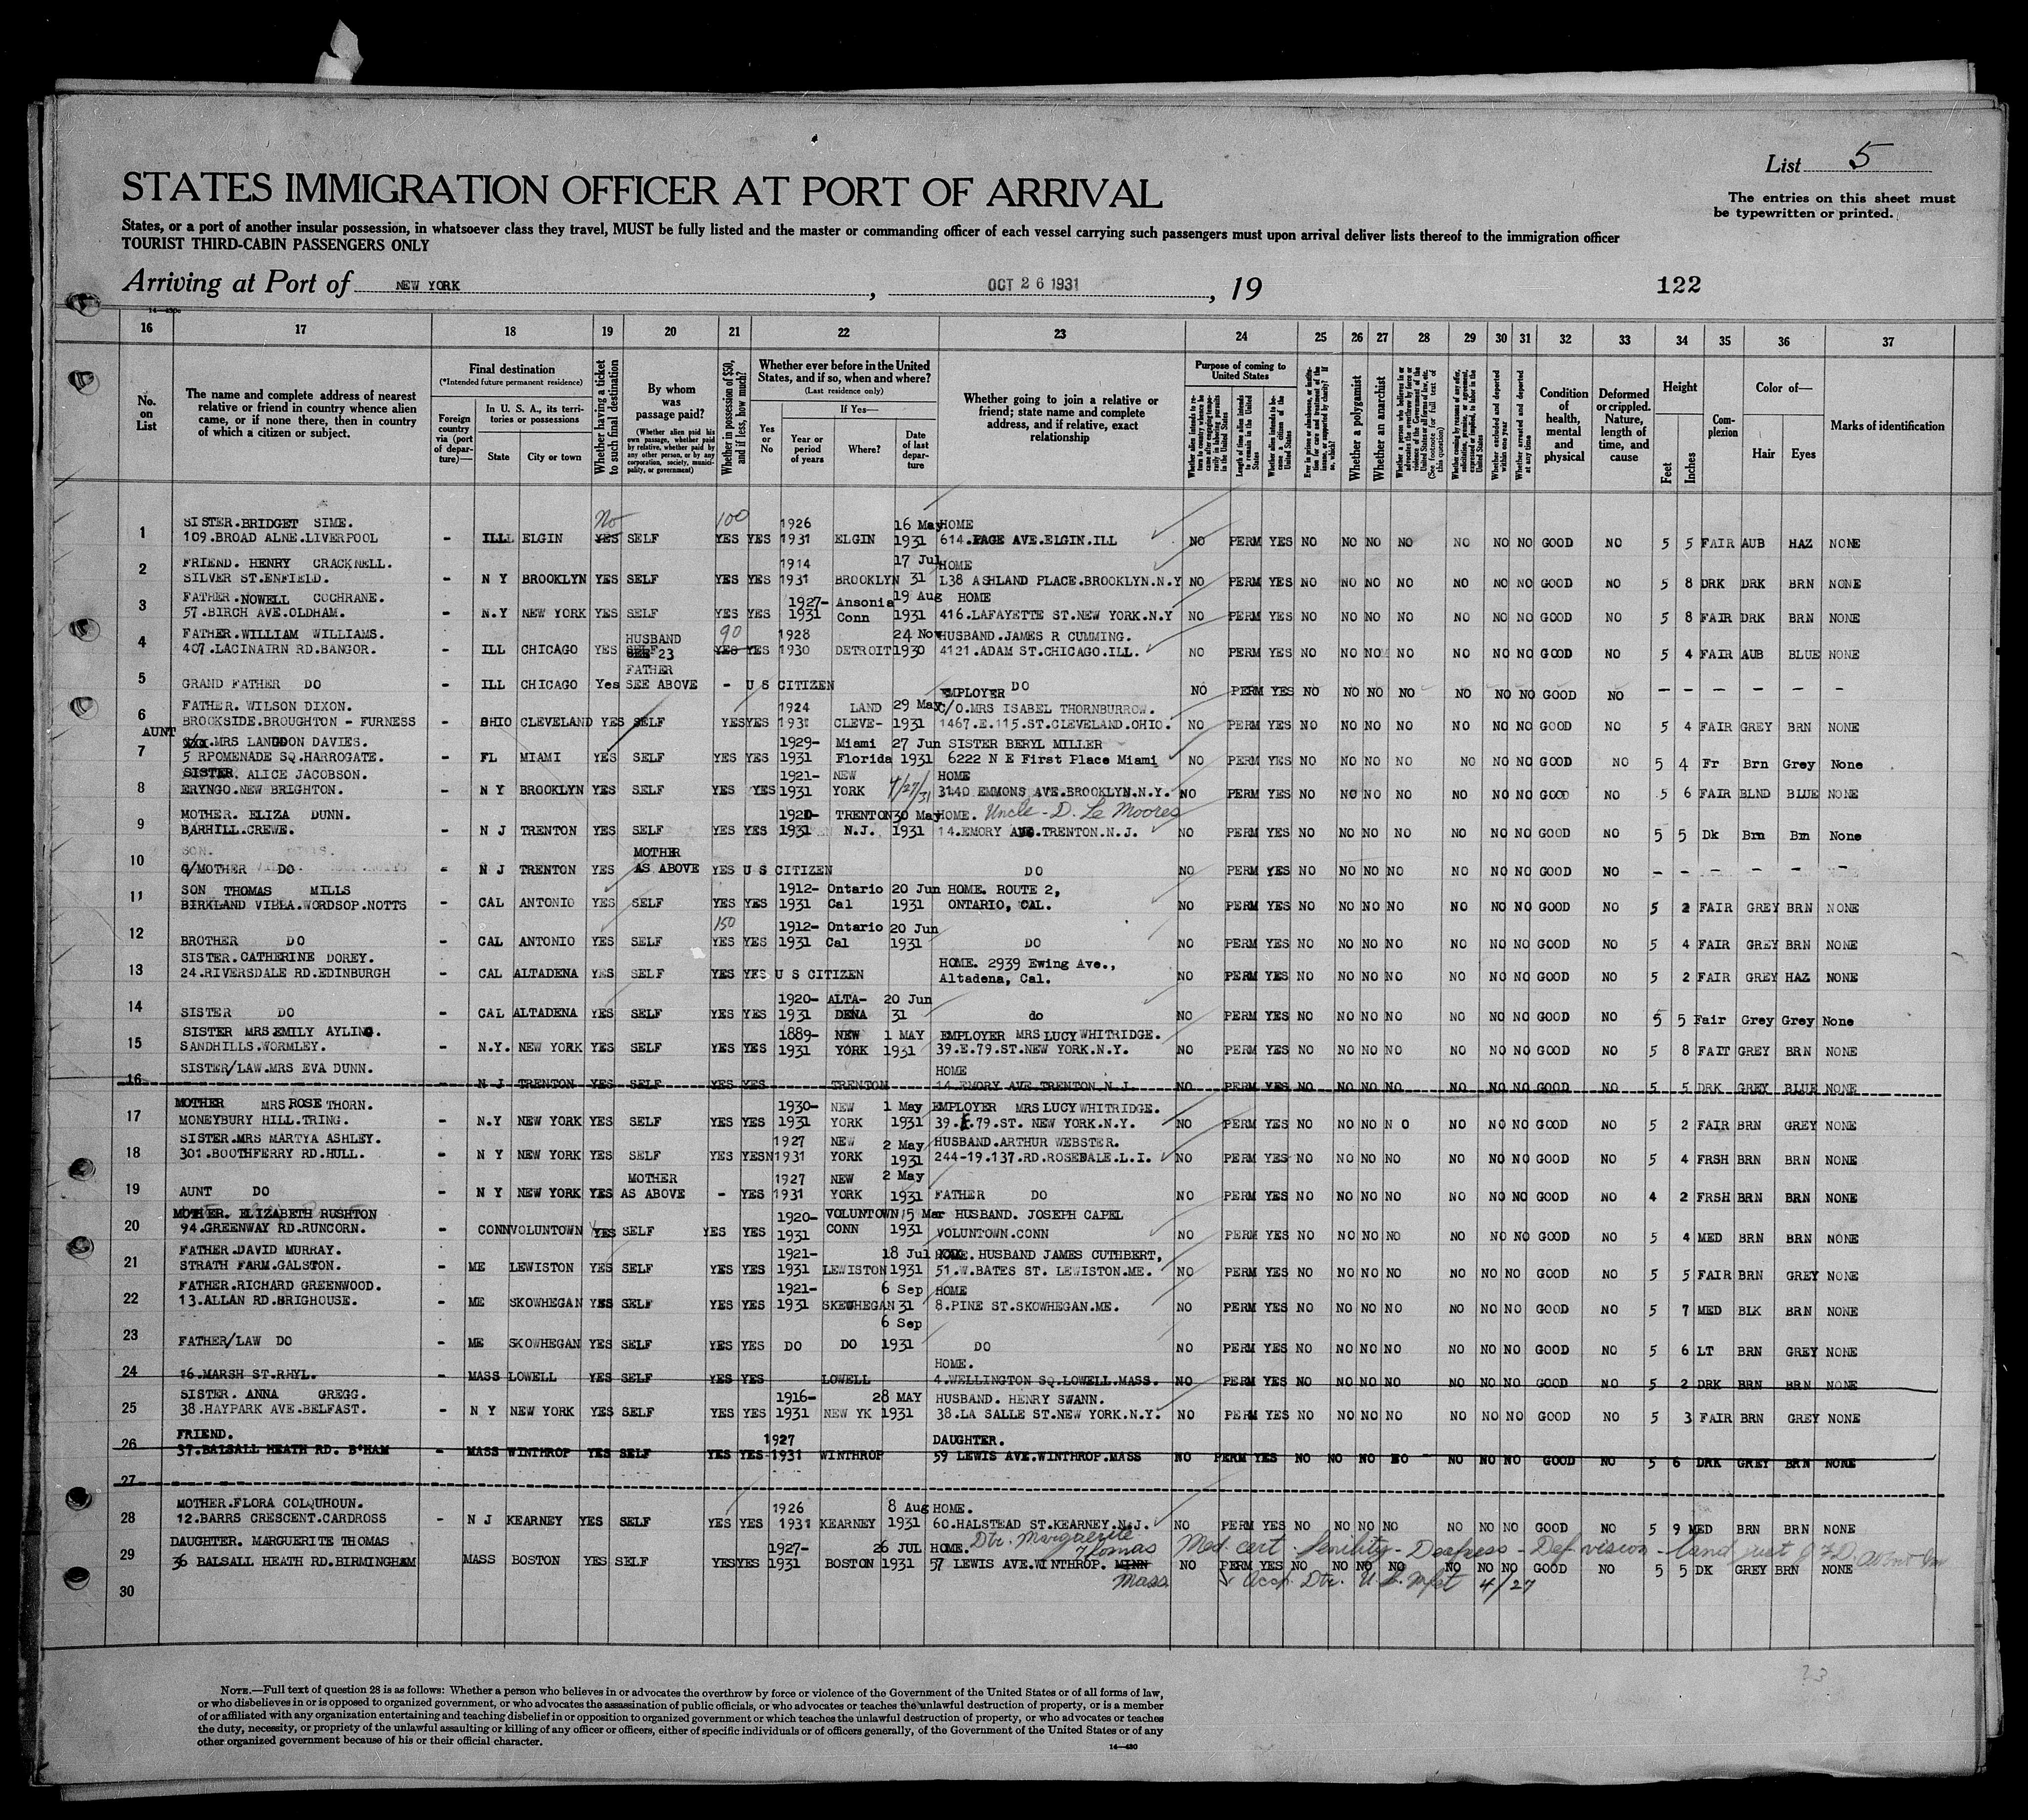 List 5
STATES IMMIGRATION OFFICER AT PORT OF ARRIVAL
The entries on this sheet must
be typewritten or printed.
States, or a port of another insular possession, in whatsoever class they travel, MUST be fully listed and the master or commanding officer of each vessel carrying such passengers must upon arrival deliver lists thereof to the immigration officer
TOURIST THIRD-CABIN PASSENGERS ONLY
Arriving at Port of NEW YORK, OCT 26 1931, 19
122
16 17 18 19 20 21 22 23 24 25 26 27 28 29 30 31 32 33 34 35 36 37
No. on List
The name and complete address of nearest relative or friend in country whence alien came, or if none there, then in country of which a citizen or subject.
Final destination
(*Intended future permanent residence)
Foreign country via (port of departure)—
In U. S. A., its territories or possessions
State
City or town
Whether having a ticket to such final destination
By whom was passage paid?
(Whether alien paid his own passage, whether paid by relative, whether paid by any other person, or by any corporation, society, municipality, or government)
Whether in possession of $50, and if less, how much?
Whether ever before in the United States, and if so, when and where?
(Last residence only)
Yes or No
If Yes—
Year or period of years
Where?
Date of last departure
Whether going to join a relative or friend; state name and complete address, and if relative, exact relationship
Purpose of coming to United States
Whether alien intends to return to country whence he came after engaging temporarily in laboring pursuits in the United States
Length of time alien intends to remain in the United States
Whether alien intends to become a citizen of the United States
Ever in prison or almshouse, or institution for care and treatment of the insane, or supported by charity? If so, which?
Whether a polygamist
Whether an anarchist
Whether a person who believes in or advocates the overthrow by force or violence of the Government of the United States or all forms of law, etc. (See footnote for full text of this question)
Whether coming by reason of any offer, solicitation, promise, or agreement, expressed or implied, to labor in the United States
Whether excluded and deported within one year
Whether arrested and deported at any time
Condition of health, mental and physical
Deformed or crippled. Nature, length of time, and cause
Height
Feet
Inches
Complexion
Color of—
Hair
Eyes
Marks of identification
No 100
SISTER.BRIDGET SIME. 1926 16 May HOME
1 109.BROAD ALNE.LIVERPOOL - ILL ELGIN YES SELF YES YES 1931 ELGIN 1931 614.PAGE AVE.ELGIN.ILL NO PERM YES NO NO NO NO NO NO NO GOOD NO 5 5 FAIR AUB HAZ NONE
FRIEND. HENRY CRACKNELL. 1914 17 Jul HOME
2 SILVER ST.ENFIELD. - N Y BROOKLYN YES SELF YES YES 1931 BROOKLYN 31 L38 ASHLAND PLACE.BROOKLYN.N.Y NO PERM YES NO NO NO NO NO NO NO GOOD NO 5 8 DRK DRK BRN NONE
FATHER.NOWELL COCHRANE. 1927- Ansonia 19 Aug HOME
3 57.BIRCH AVE.OLDHAM. - N.Y NEW YORK YES SELF YES YES 1931 Conn 1931 416.LAFAYETTE ST.NEW YORK.N.Y NO PERM YES NO NO NO NO NO NO NO GOOD NO 5 8 FAIR DRK BRN NONE
FATHER.WILLIAM WILLIAMS. HUSBAND 90 1928 24 Nov HUSBAND.JAMES R CUMMING.
4 407.LACINAIRN RD.BANGOR. - ILL CHICAGO YES SEE 23 YES YES 1930 DETROIT 1930 4121.ADAM ST.CHICAGO.ILL. NO PERM YES NO NO NO NO NO NO NO GOOD NO 5 4 FAIR AUB BLUE NONE
FATHER
5 GRAND FATHER DO - ILL CHICAGO Yes SEE ABOVE - U S CITIZEN DO NO PERM YES NO NO NO NO NO NO NO GOOD NO - - - - - -
FATHER. WILSON DIXON. 1924 LAND 29 May EMPLOYER C/O.MRS ISABEL THORNBURROW.
6 BROOKSIDE.BROUGHTON - FURNESS - OHIO CLEVELAND YES SELF YES YES 1931 CLEVE- 1931 1467.E.115.ST.CLEVELAND.OHIO. NO PERM YES NO NO NO NO NO NO NO GOOD NO 5 4 FAIR GREY BRN NONE
AUNT MRS LANGDON DAVIES. 1929- Miami 27 Jun SISTER BERYL MILLER
7 5 RPOMENADE SQ.HARROGATE. - FL MIAMI YES SELF YES YES 1931 Florida 1931 6222 N E First Place Miami NO PERM YES NO NO NO NO NO NO NO GOOD NO 5 4 Fr Brn Grey None
SISTER. ALICE JACOBSON. 1921- NEW 4/27/31 HOME
8 ERYNGO.NEW BRIGHTON. - N Y BROOKLYN YES SELF YES YES 1931 YORK 3140 EMMONS AVE.BROOKLYN.N.Y. NO PERM YES NO NO NO NO NO NO NO GOOD NO 5 6 FAIR BLND BLUE NONE
MOTHER. ELIZA DUNN. 1920- TRENTON 30 May HOME. Uncle - D. Le Moores
9 BARHILL.CREWE. - N J TRENTON YES SELF YES YES 1931 N.J. 1931 14.EMORY AVE.TRENTON.N.J. NO PERM YES NO NO NO NO NO NO NO GOOD NO 5 5 Dk Brn Brn None
MOTHER
10 G/MOTHER DO - N J TRENTON YES AS ABOVE YES U S CITIZEN DO NO PERM YES NO NO NO NO NO NO NO GOOD NO - - - - - -
SON THOMAS MILLS 1912- Ontario 20 Jun HOME. ROUTE 2,
11 BIRKLAND VILLA.WORDSOP.NOTTS - CAL ANTONIO YES SELF YES YES 1931 Cal 1931 ONTARIO, CAL. NO PERM YES NO NO NO NO NO NO NO GOOD NO 5 2 FAIR GREY BRN NONE
150 1912- Ontario 20 Jun
12 BROTHER DO - CAL ANTONIO YES SELF YES YES 1931 Cal 1931 DO NO PERM YES NO NO NO NO NO NO NO GOOD NO 5 4 FAIR GREY BRN NONE
SISTER.CATHERINE DOREY. HOME. 2939 Ewing Ave.,
13 24.RIVERSDALE RD.EDINBURGH - CAL ALTADENA YES SELF YES YES U S CITIZEN Altadena, Cal. NO PERM YES NO NO NO NO NO NO NO GOOD NO 5 2 FAIR GREY HAZ NONE
1920- ALTA- 20 Jun
14 SISTER DO - CAL ALTADENA YES SELF YES YES 1931 DENA 31 do NO PERM YES NO NO NO NO NO NO NO GOOD NO 5 5 Fair Grey Grey None
SISTER MRS EMILY AYLING. 1889- NEW 1 MAY EMPLOYER MRS LUCY WHITRIDGE.
15 SANDHILLS.WORMLEY. - N.Y. NEW YORK YES SELF YES YES 1931 YORK 1931 39.E.79.ST.NEW YORK.N.Y. NO PERM YES NO NO NO NO NO NO NO GOOD NO 5 8 FAIT GREY BRN NONE
SISTER/LAW.MRS EVA DUNN. HOME
16 - N J TRENTON YES SELF YES YES TRENTON 14.EMORY AVE TRENTON N.J. NO PERM YES NO NO NO NO NO NO NO GOOD NO 5 5 DRK GREY BLUE NONE
MOTHER MRS ROSE THORN. 1930- NEW 1 May EMPLOYER MRS LUCY WHITRIDGE.
17 MONEYBURY HILL.TRING. - N.Y NEW YORK YES SELF YES YES 1931 YORK 1931 39.E.79.ST. NEW YORK.N.Y. NO PERM YES NO NO NO N O NO NO NO GOOD NO 5 2 FAIR BRN GREY NONE
SISTER.MRS MARTYA ASHLEY. 1927 NEW 2 May HUSBAND.ARTHUR WEBSTER.
18 301.BOOTHFERRY RD.HULL. - N Y NEW YORK YES SELF YES YESN 1931 YORK 1931 244-19.137.RD.ROSEDALE.L.I. NO PERM YES NO NO NO NO NO NO NO GOOD NO 5 4 FRSH BRN BRN NONE
MOTHER 1927 NEW 2 May
19 AUNT DO - N Y NEW YORK YES AS ABOVE - YES 1931 YORK 1931 FATHER DO NO PERM YES NO NO NO NO NO NO NO GOOD NO 4 2 FRSH BRN BRN NONE
MOTHER. ELIZABETH RUSHTON 1920- VOLUNTOWN 15 Mar HUSBAND. JOSEPH CAPEL
20 94.GREENWAY RD.RUNCORN. - CONN VOLUNTOWN YES SELF YES YES 1931 CONN 1931 VOLUNTOWN.CONN NO PERM YES NO NO NO NO NO NO NO GOOD NO 5 4 MED BRN BRN NONE
FATHER.DAVID MURRAY. 1921- 18 Jul HUSBAND JAMES CUTHBERT,
21 STRATH FARM.GALSTON. - ME LEWISTON YES SELF YES YES 1931 LEWISTON 1931 51.W.BATES ST. LEWISTON.ME. NO PERM YES NO NO NO NO NO NO NO GOOD NO 5 5 FAIR BRN GREY NONE
FATHER.RICHARD GREENWOOD. 1921- 6 Sep HOME
22 13.ALLAN RD.BRIGHOUSE. - ME SKOWHEGAN YES SELF YES YES 1931 SKEGHEGAN 31 8.PINE ST.SKOWHEGAN.ME. NO PERM YES NO NO NO NO NO NO NO GOOD NO 5 7 MED BLK BRN NONE
6 Sep
23 FATHER/LAW DO - ME SKOWHEGAN YES SELF YES YES DO DO 1931 DO NO PERM YES NO NO NO NO NO NO NO GOOD NO 5 6 LT BRN GREY NONE
HOME.
24 16.MARSH ST.RHYL. - MASS LOWELL YES SELF YES YES LOWELL 4.WELLINGTON SQ.LOWELL.MASS. NO PERM YES NO NO NO NO NO NO NO GOOD NO 5 2 DRK BRN BRN NONE
SISTER. ANNA GREGG. 1916- 28 MAY HUSBAND. HENRY SWANN.
25 38.HAYPARK AVE.BELFAST. - N Y NEW YORK YES SELF YES YES 1931 NEW YK 1931 38.LA SALLE ST.NEW YORK.N.Y. NO PERM YES NO NO NO NO NO NO NO GOOD NO 5 3 FAIR BRN GREY NONE
FRIEND. 1927 DAUGHTER.
26 37.BALSALL HEATH RD. B'HAM - MASS WINTHROP YES SELF YES YES 1931 WINTHROP 59 LEWIS AVE.WINTHROP.MASS NO PERM YES NO NO NO NO NO NO NO GOOD NO 5 6 DRK GREY BRN NONE
27
MOTHER.FLORA COLQUHOUN. 1926 8 Aug HOME.
28 12.BARRS CRESCENT.CARDROSS - N J KEARNEY YES SELF YES YES 1931 KEARNEY 1931 60.HALSTEAD ST.KEARNEY.N.J. NO PERM YES NO NO NO NO NO NO NO GOOD NO 5 9 MED BRN BRN NONE
DAUGHTER. MARGUERITE THOMAS 1927- 26 JUL HOME. Dtr. Marguerite Thomas Med. cert - Senility - Deafness - Def. vision - land just
29 36 BALSALL HEATH RD.BIRMINGHAM MASS BOSTON YES SELF YES YES 1931 BOSTON 1931 57 LEWIS AVE.WINTHROP. MINN NO PERM YES NO NO NO NO NO NO NO GOOD NO 5 5 DK GREY BRN NONE
Mass Acc. Dtr. U.S. 4/27
30
23
NOTE.—Full text of question 28 is as follows: Whether a person who believes in or advocates the overthrow by force or violence of the Government of the United States or of all forms of law,
or who disbelieves in or is opposed to organized government, or who advocates the assassination of public officials, or who advocates or teaches the unlawful destruction of property, or is a member
of or affiliated with any organization entertaining and teaching disbelief in or opposition to organized government or which teaches the unlawful destruction of property, or who advocates or teaches
the duty, necessity, or propriety of the unlawful assaulting or killing of any officer or officers, either of specific individuals or of officers generally, of the Government of the United States or of any
other organized government because of his or their official character.
14—430